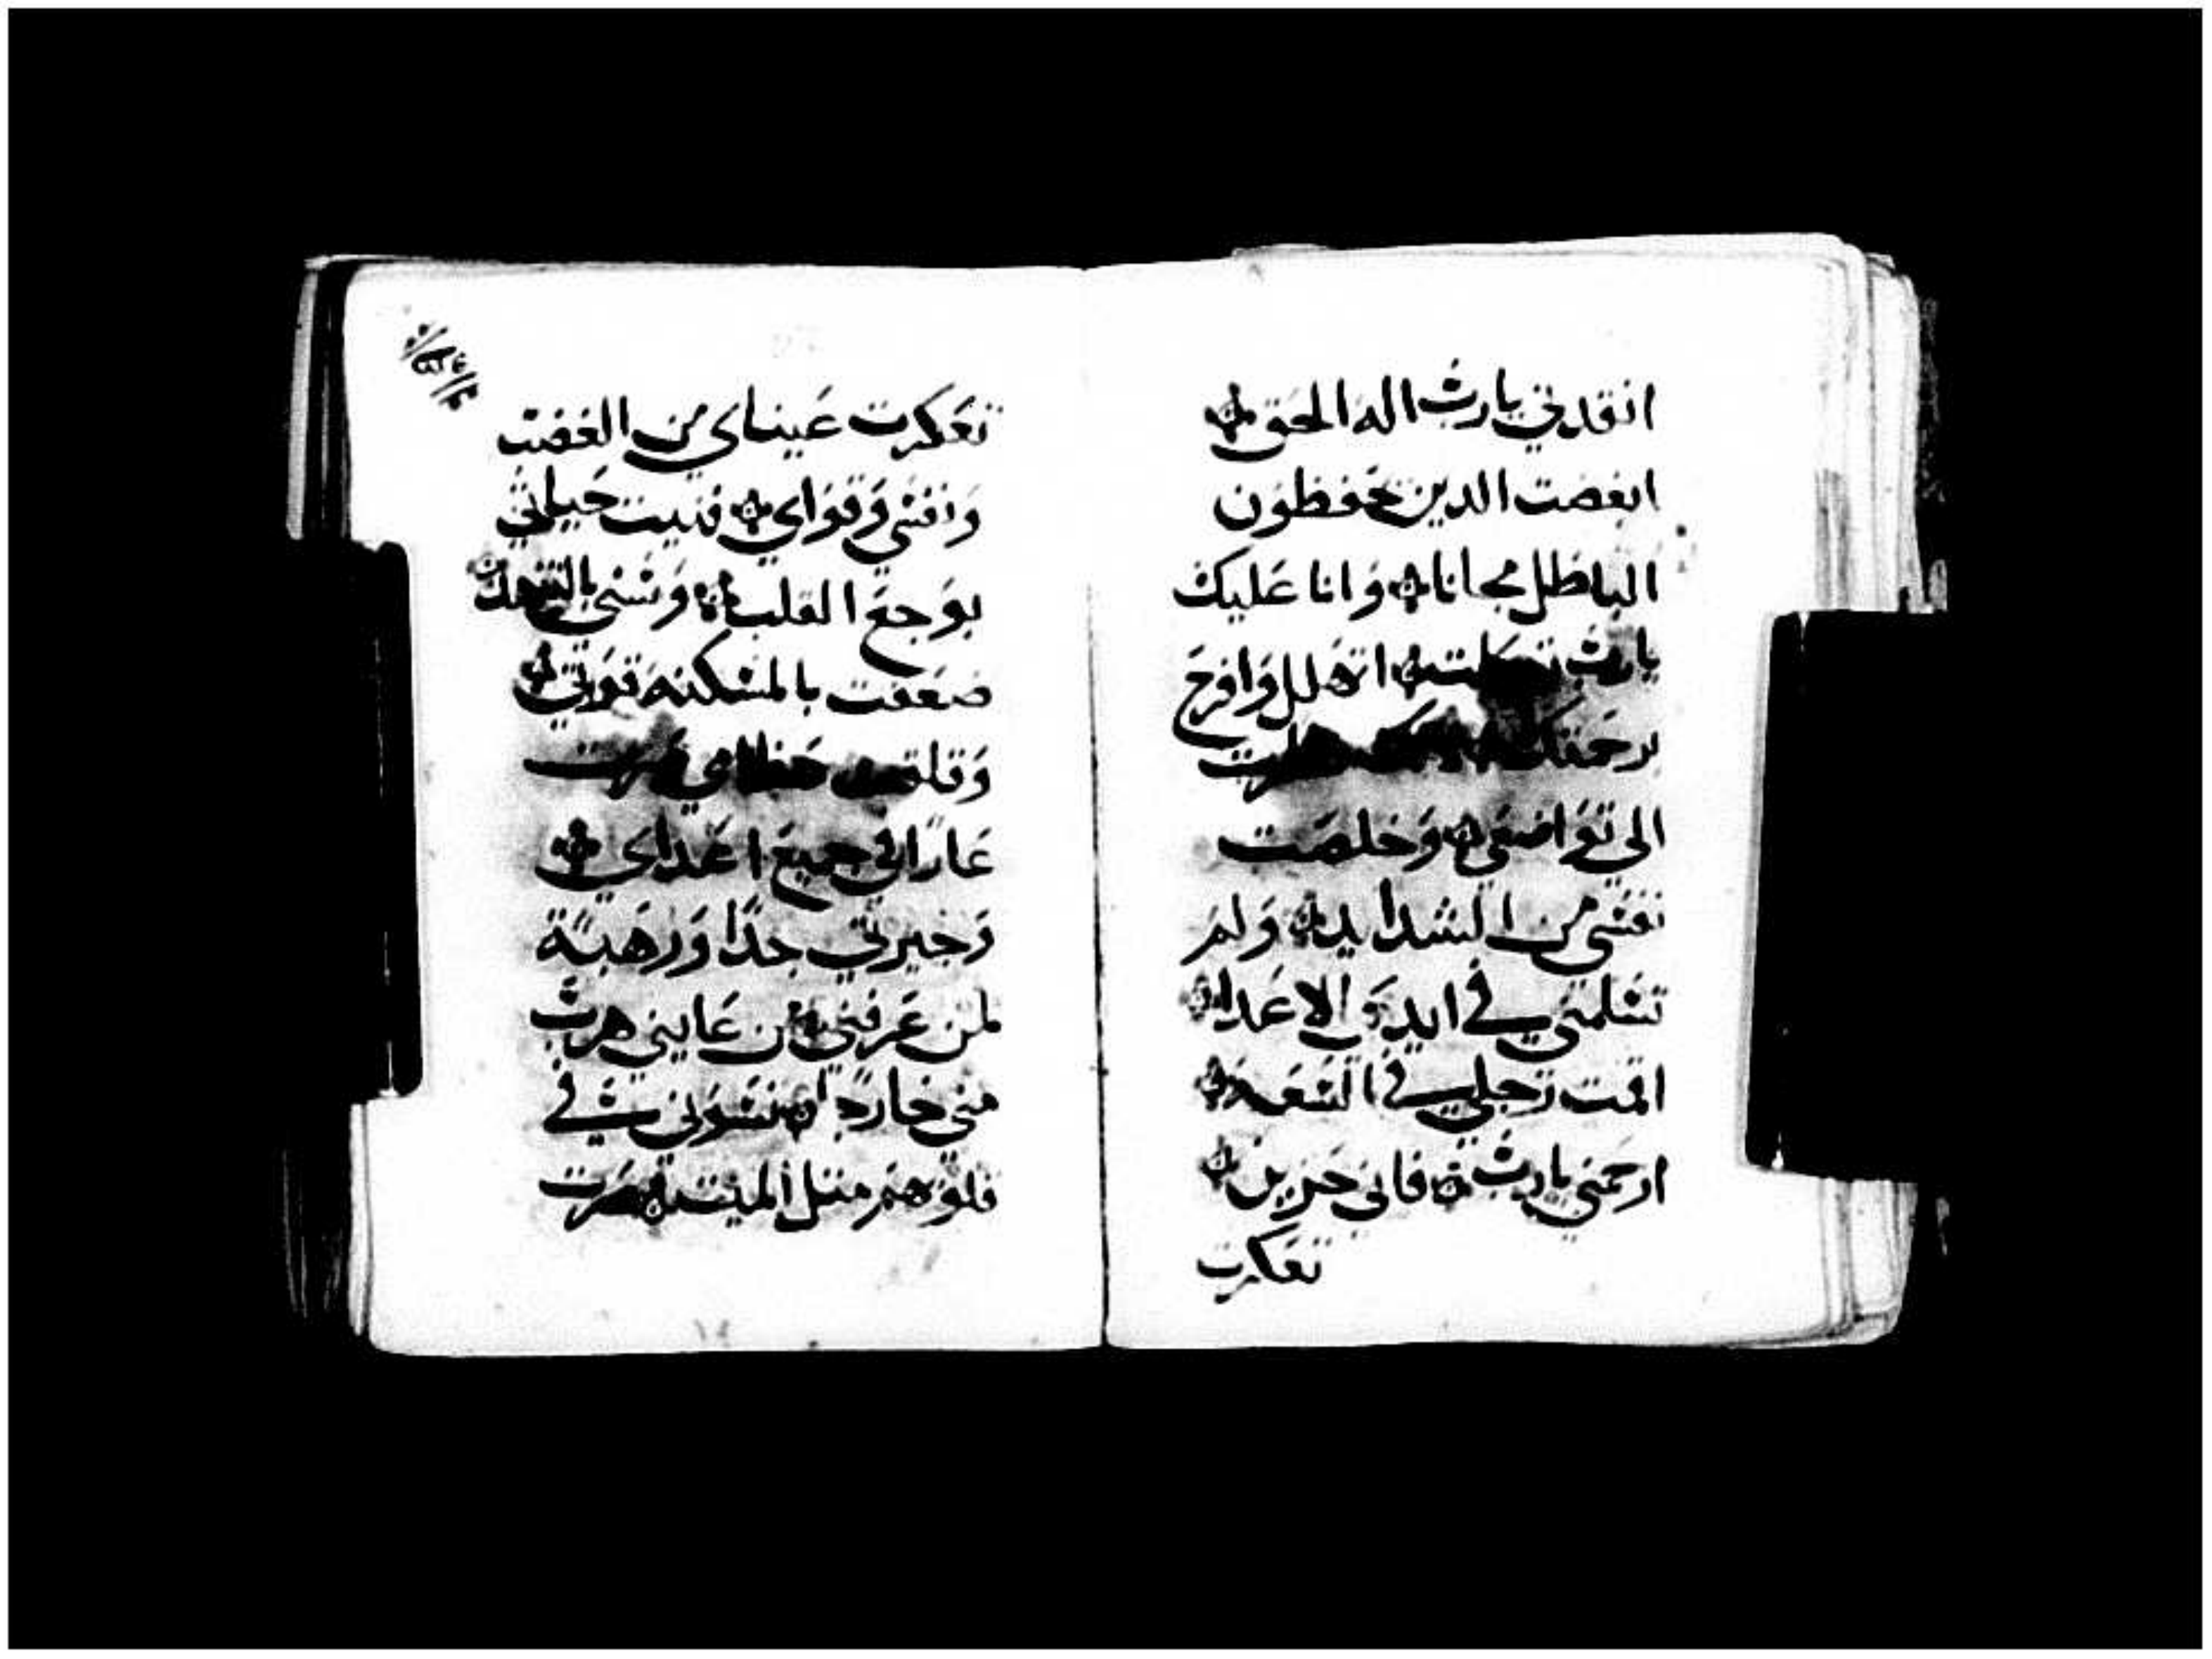 انقدني يارب اله الحق
ابغضت الدين يحفظون
الباطل مجانا وانا عليك
يارب توكلت اتهلل وافرح
برحمتك لانك نظرت
الى تواضعي وخلصت
نفسي من الشدايد ولم
تسلمني في ايدي الاعدا
اقمت رجلي في السعه
ارحمني يارب فاني حزين
تعكرت
تعكرت عيناي من الغضب
ونفسي وقواي فنيت حياتي
بوجع القلب وسني بالتنهد
ضعفت بالمسكنه قوتي
وقلقت عظامي صرت
عارا في جميع اعداي
وجيرتي جدا ورهبة
لمن عرفني من عايني هرب
مني خارجا نسوني في
قلوبهم مثل الميت صرت